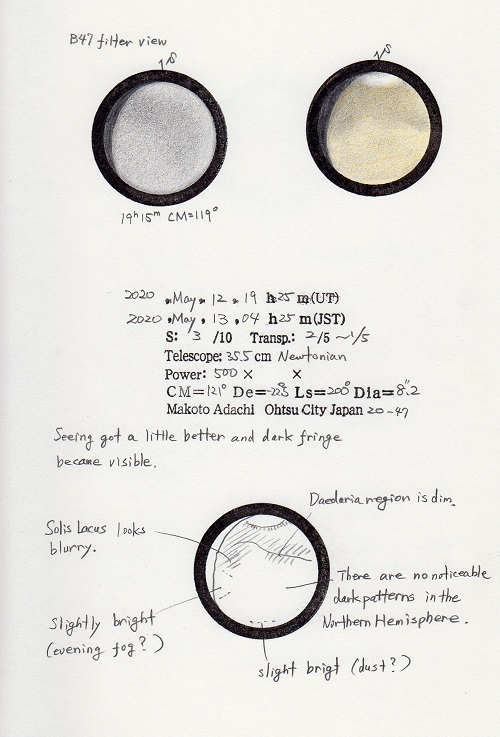 B47 filter view
S
S
19h 15m CM=119°
2020 .May. 12. 19 h25 m(UT)
2020 .May. 13. 04 h25 m(JST)
S: 3 /10 Transp.: 2/5 ~ 1/5
Telescope: 35.5 cm Newtonian
Power: 500 × ×
CM=121° De=-22° Ls=200° Dia=8".2
Makoto Adachi Ohtsu City Japan 20-47
Seeing got a little better and dark fringe
became visible.
Daedaria region is dim.
Solis Lacus looks
blurry.
There are no noticeable
dark patterns in the
Northern Hemisphere.
Slightly bright
(evening fog?)
slight brigt (dust?)